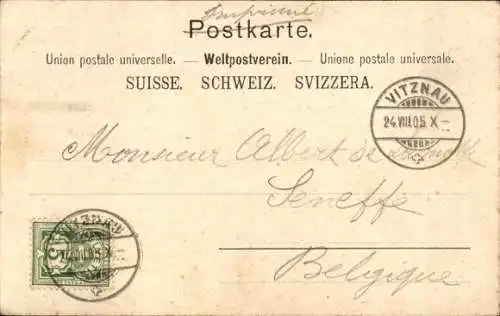 Imprimé
Postkarte.
Union postale universelle. — Weltpostverein. — Unione postale universale.
SUISSE. SCHWEIZ. SVIZZERA.
VITZNAU
24.VIII.05.X–
Monsieur Albert de
Seneffe
VITZNAU
5
Belgique